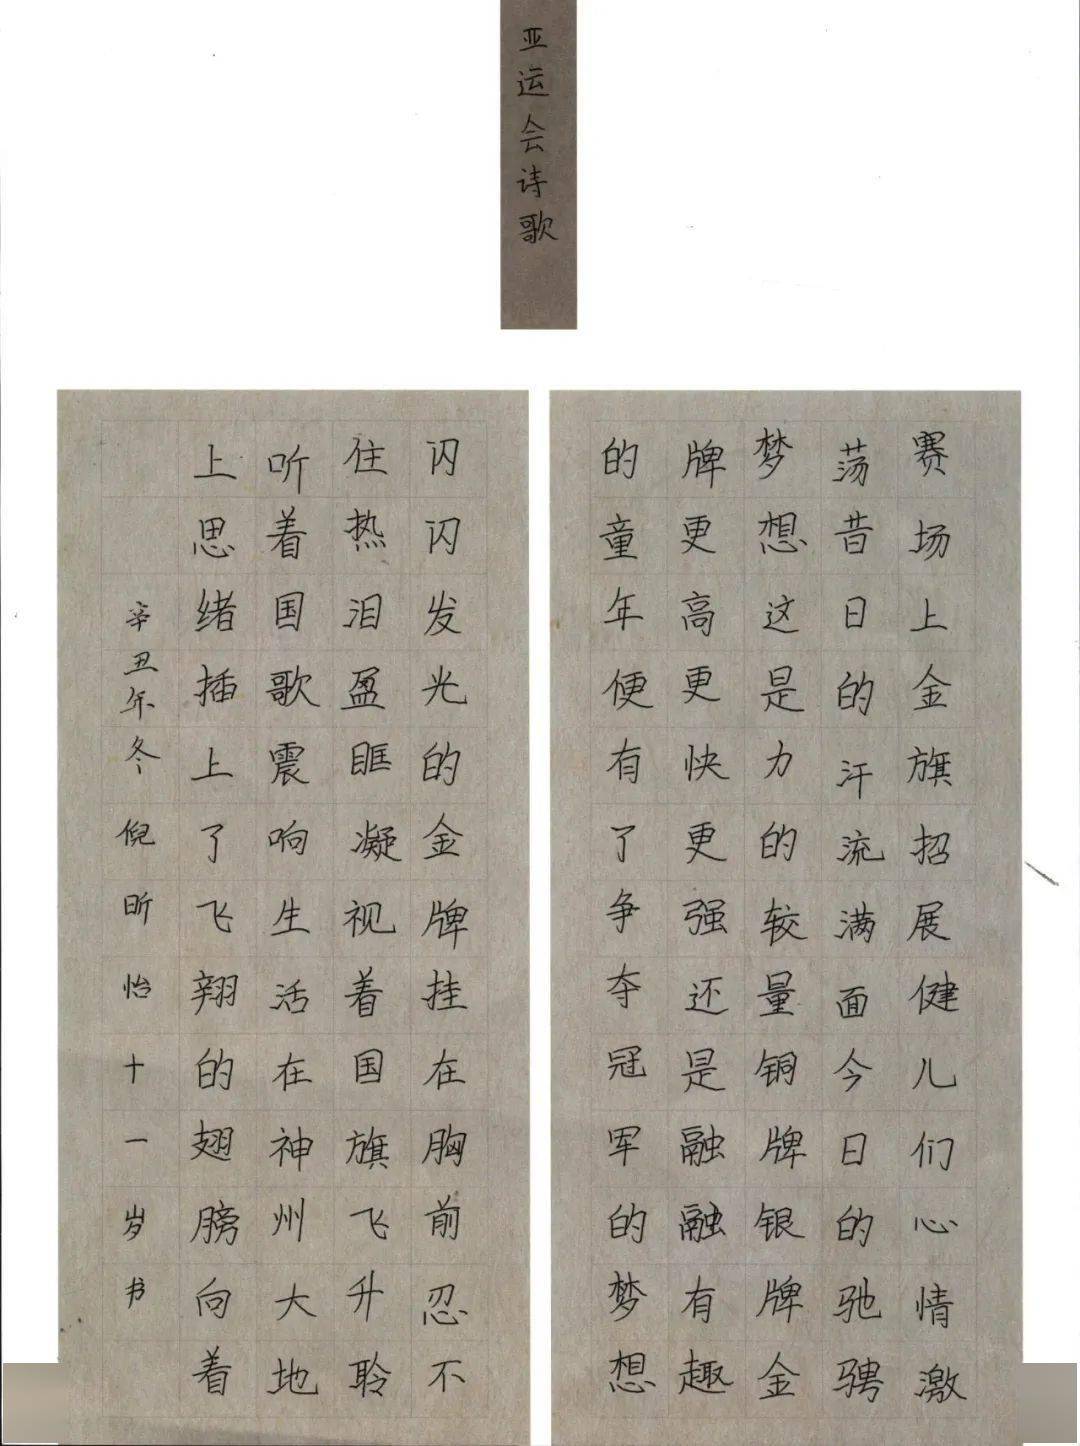 亚运会诗歌
赛场上金旗招展健儿们心情激
荡昔日的汗流满面今日的驰骋
梦想这是力的较量铜牌银牌金
牌更高更快更强还是融融有趣
的童年便有了争夺冠军的梦想
闪闪发光的金牌挂在胸前忍不
住热泪盈眶凝视着国旗飞升聆
听着国歌震响生活在神州大地
上思绪插上了飞翔的翅膀向着
辛丑年冬倪昕怡十一岁书